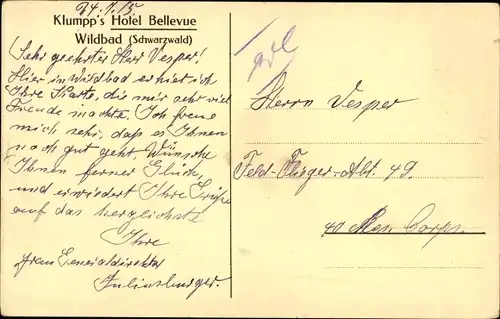 24.7.15
Klumpp's Hotel Bellevue
Wildbad (Schwarzwald)
Sehr geehrter Herr Vesper!
Hier in Wildbad erhielt ich
Ihre Karte, die mir sehr viel
Freude machte. Ich freue
mich sehr, daß es Ihnen
noch gut geht. Wünsche
Ihnen ferner Glück,
und erwiedert Ihre Grüße
auf das herzlichste
Ihre
frau Generaldirektor
Juliusburger.
Herrn Vesper
Feld-Flieger-Abt. 49.
40 Corps.